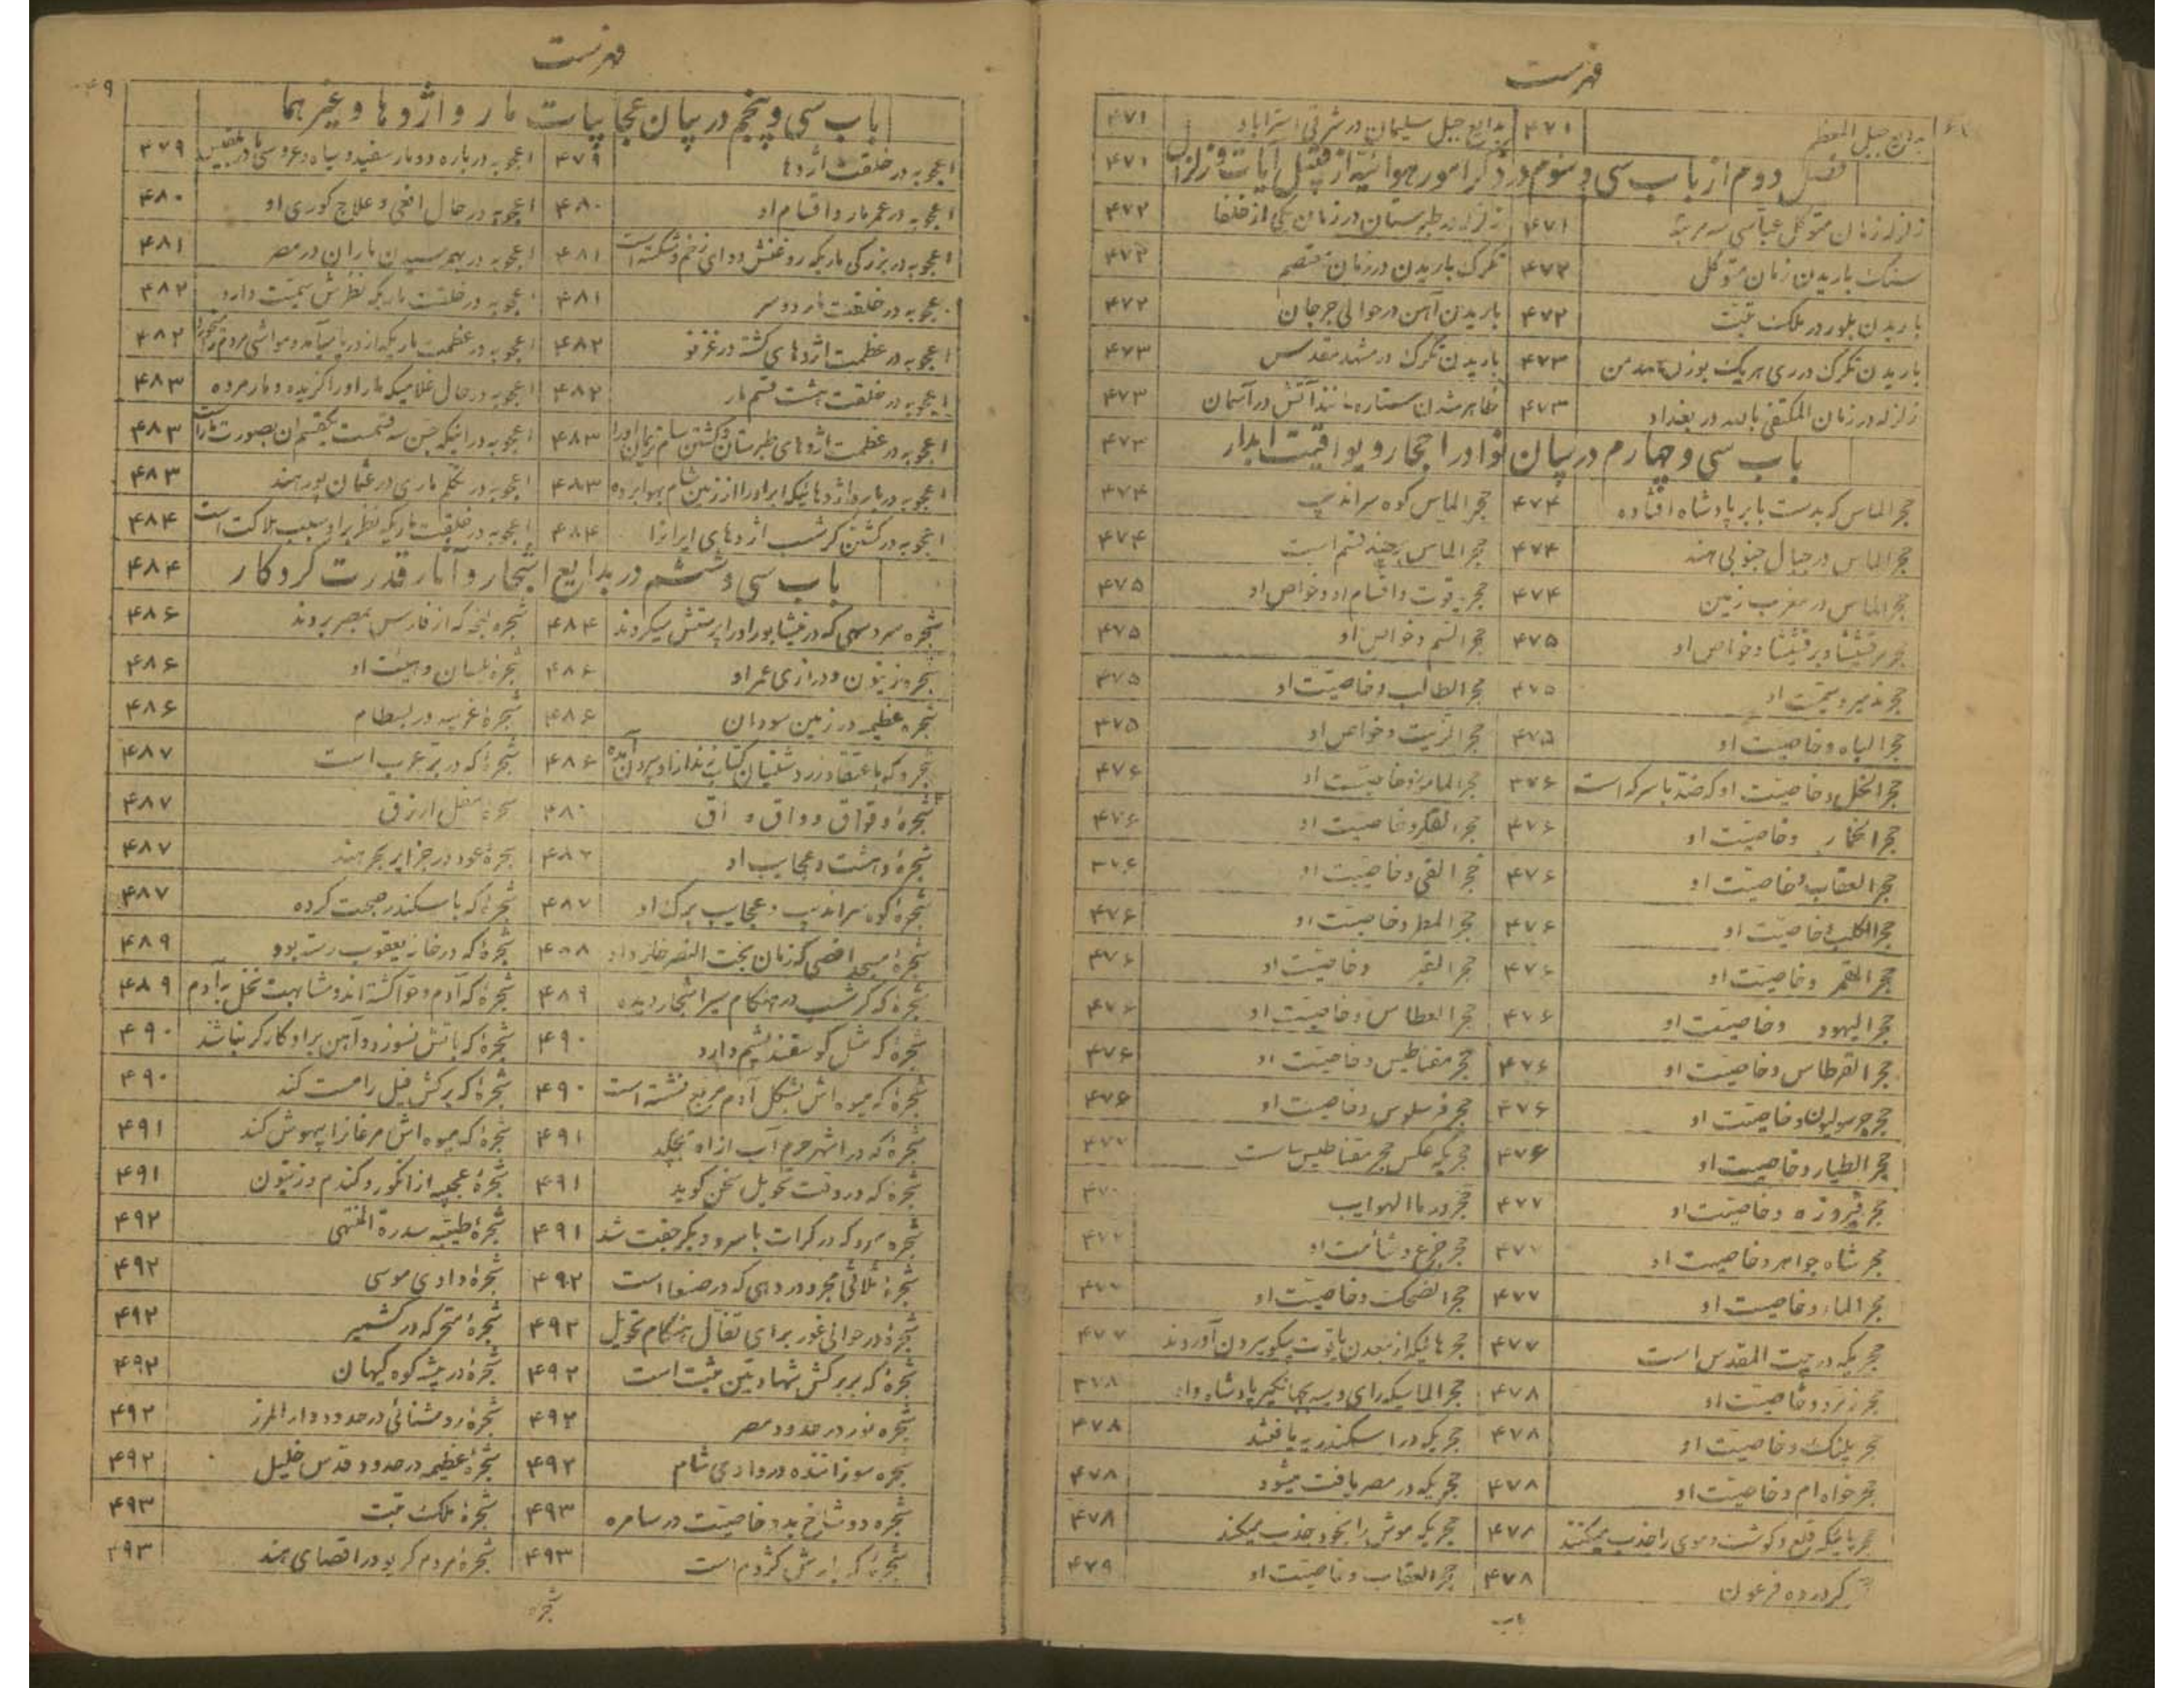 فهرست
بدایع جبل المعظم ۴۷۱ بدایع جبل سلیمان در شرقی استراباد ۴۷۱
فصل دوم از باب سی و سوم در ذکر امور هوائیه از قبیل آیات و زلزال ۴۷۱
زلزله زمان متوکل عباسی سه مرتبه ۴۷۱ زلزله در طبرستان در زمان یکی از خلفا ۴۷۲
سنک باریدن زمان متوکل ۴۷۲ تکرک باریدن در زمان معتصم ۴۷۲
باریدن بلور در ملک تبت ۴۷۲ باریدن آهن در حوالی جرجان ۴۷۲
باریدن تکرک در ری هریک بوزن من ۴۷۳ باریدن تکرک در مشهد مقدس ۴۷۳
زلزله در زمان المکتفی بالله در بغداد ۴۷۳ ظاهر شدن ستاره مانند آتش در آسمان ۴۷۳
باب سی و چهارم در بیان نوادر احجار و یواقیت ابدار ۴۷۳
حجر الماس که بدست بابر پادشاه افتاده ۴۷۴ حجر الماس کوه سراندیب ۴۷۴
حجر الماس در جبال جنوبی هند ۴۷۴ حجر الماس بر چند قسم است ۴۷۴
حجر الماس در مغرب زمین ۴۷۴ حجر یاقوت و اقسام او و خواص او ۴۷۵
حجر و خواص او ۴۷۵ حجر السم و خواص او ۴۷۵
حجر او ۴۷۵ حجر الطالب و خاصیت او ۴۷۵
حجر الباه و خاصیت او ۴۷۵ حجر الزیت و خواص او ۴۷۵
حجر الخل و خاصیت او که ضد با سرکه است ۴۷۶ حجر و خاصیت او ۴۷۶
حجر الخمار و خاصیت او ۴۷۶ حجر و خاصیت او ۴۷۶
حجر العقاب و خاصیت او ۴۷۶ حجر القی و خاصیت او ۴۷۶
حجر الکلب و خاصیت او ۴۷۶ حجر المطر و خاصیت او ۴۷۶
حجر القمر و خاصیت او ۴۷۶ حجر و خاصیت او ۴۷۶
حجر الیهود و خاصیت او ۴۷۶ حجر العطاس و خاصیت او ۴۷۶
حجر القرطاس و خاصیت او ۴۷۶ حجر مقناطیس و خاصیت او ۴۷۶
حجر و خاصیت او ۴۷۶ حجر فرسلوس و خاصیت او ۴۷۶
حجر الطیار و خاصیت او ۴۷۶ حجریکه عکس حجر مقناطیس است ۴۷۷
حجر فیروزه و خاصیت او ۴۷۷ حجر
حجر شاه جواهر و خاصیت او ۴۷۷ حجر جزع و شأمت او ۴۷۷
حجر الماء و خاصیت او ۴۷۷ حجر الضحک و خاصیت او ۴۷۷
حجریکه در بیت المقدس است ۴۷۷ حجرهائیکه از معدن یاقوت بیکو بیرون آوردند ۴۷۷
حجر زمرد و خاصیت او ۴۷۸ حجر الماسیکه رای بجهانکیر پادشاه داد ۴۷۸
حجر پلنک و خاصیت او ۴۷۸ حجریکه در اسکندریه یافتند ۴۷۸
حجر خواه ام و خاصیت او ۴۷۸ حجریکه در مصر یافت میشود ۴۷۸
حجرهائیکه قلع و کوشت و موی را جذب میکنند ۴۷۸ حجریکه موش را بخود جذب میکند ۴۷۸
کرده فرعون ۴۷۸ حجر العقاب و خاصیت او ۴۷۹
باب
فهرست
باب سی و پنجم در بیان عجایبات مار و اژدها و غیر هما
اعجوبه در خلقت اژدها ۴۷۹ اعجوبه درباره دو مار سفید و سیاه و عروسی با بلقیس ۴۷۹
اعجوبه در عمر مار و اقسام او ۴۸۰ اعجوبه در حال افعی و علاج کوری او ۴۸۰
اعجوبه در بزرکی ماریکه روغنش دوای زخم و شکسته است ۴۸۱ اعجوبه در بهم رسیدن ماران در مصر ۴۸۱
اعجوبه در خلقت مار دو سر ۴۸۱ اعجوبه در خلقت ماریکه نظرش سمیت دارد ۴۸۲
اعجوبه در عظمت اژدهای کشته در غزنو ۴۸۲ اعجوبه در عظمت ماریکه از دریا میآمد و مواشی مردم را میخورد ۴۸۲
اعجوبه در خلقت هشت قسم مار ۴۸۲ اعجوبه در حال غلامیکه مار او را کزیده و مار مرده ۴۸۳
اعجوبه در عظمت اژدهای طبرستان و کشتن سام نریمان او را ۴۸۳ اعجوبه در اینکه جن سه قسمت یکقسم ان بصورت مار است ۴۸۳
اعجوبه در باره اژدهائیکه ابر او را از زمین شام بهوا برده ۴۸۳ اعجوبه در تکلم ماری در عثمان پور هند ۴۸۳
اعجوبه در کشتن کرشسب اژدهای ایرانرا ۴۸۴ اعجوبه در خلقت ماریکه نظر بر او سبب هلاکت است ۴۸۴
باب سی و ششم در بدایع اشجار و آثار قدرت کردکار ۴۸۴
شجره سرو سهی که در نیشابور او را پرستش میکردند ۴۸۴ شجره که از فارس بمصر بردند ۴۸۶
شجره زیتون و درازی عمر او ۴۸۶ شجرۀ بلسان و هیئت او ۴۸۶
شجره عظیمه در زمین سودان ۴۸۶ شجرۀ غریبه در بسطام ۴۸۶
شجره که باعتقاد زردشتیان کتاب زند از او بیرون آمده ۴۸۶ شجرۀ که در بر عرب است ۴۸۷
شجرۀ وقواق و واق و اق شجرۀ مقل ارزق ۴۸۷
شجرۀ دهشت و عجایب او شجرۀ عود در جزایر بحر هند ۴۸۷
شجرۀ کوه سراندیب و عجایب برک او ۴۸۷ شجرۀ که با سکندر صحبت کرده ۴۸۷
شجرۀ مسجد اقصی که زمان بخت النصر خبر داد ۴۸۸ شجرۀ که در خانه یعقوب رسته بود ۴۸۹
شجرۀ که کرشسب در هنکام سیر اشجار دیده ۴۸۹ شجرۀ که آدم و حوا کشته اند و مشابهت نخل بآدم ۴۸۹
شجرۀ که مثل کوسفند پشم دارد ۴۹۰ شجرۀ که باتش نسوزد و آهن بر او کارکر نباشد ۴۹۰
شجرۀ که میوه اش بشکل آدم مربع نشسته است ۴۹۰ شجرۀ که برکش فیل را مست کند ۴۹۰
شجرۀ که در اشهر حرم آب از او بچکد ۴۹۱ شجرۀ که میوه اش مرغانرا بیهوش کند ۴۹۱
شجرۀ که در وقت تحویل سخن کوید ۴۹۱ شجرۀ عجیبه از انکور و کندم و زیتون ۴۹۱
شجره سرو که در کرات با سرو دیکر جفت شد ۴۹۱ شجرۀ طیبه سدرة المنتهی ۴۹۲
شجرۀ که در صنعا است ۴۹۲ شجرۀ وادی موسی ۴۹۲
شجرۀ در حوالی غور برای تفال هنکام تحویل ۴۹۲ شجرۀ متحرکه در کشمیر ۴۹۲
شجرۀ که بر برکش شهادتین مثبت است ۴۹۲ شجرۀ در بیشه کوه کیهان ۴۹۲
شجره نور در حدود مصر ۴۹۲ شجرۀ روشنائی در حدود دار المرز ۴۹۲
شجره سوزاننده در وادی شام ۴۹۲ شجرۀ عظیمه در حدود قدس خلیل ۴۹۲
شجره دو شاخ بید و خاصیت در سامره ۴۹۳ شجرۀ ملک تبت ۴۹۳
شجرۀ که بارش کژدم است ۴۹۳ شجرۀ مردم کریو در اقصای هند ۴۹۳
شجره